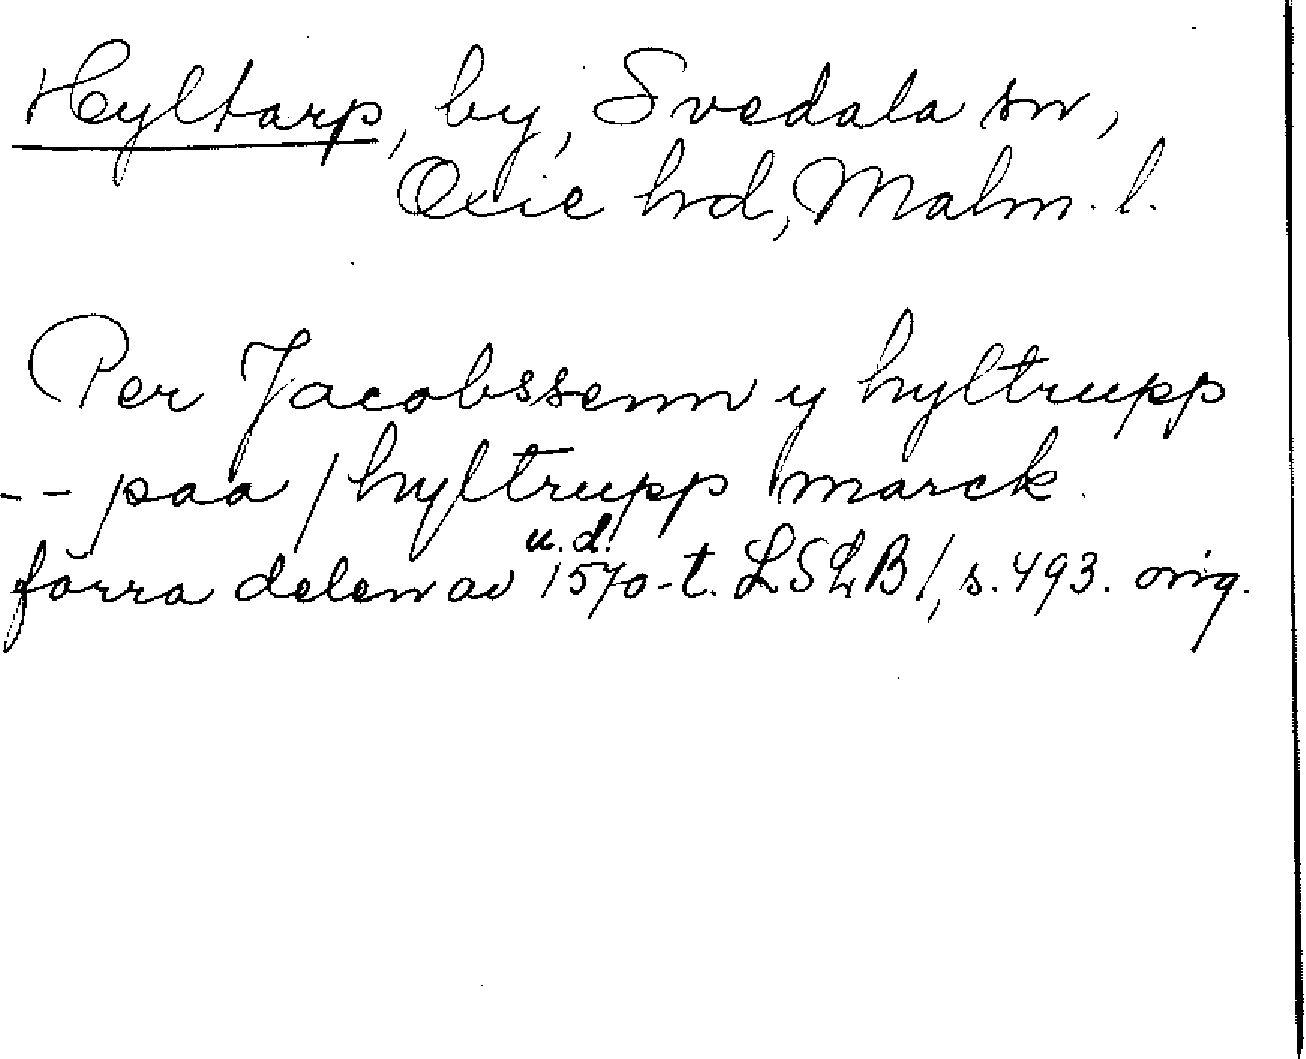 Hyltarp, by, Svedala sn,
Oxie hd, Malm. l.
Per Jacobssenn y hyltrupp
-- paa / hyltrupp marck.
u. d.
förra delen av 1570-t. LSLB 1, s. 493. orig.